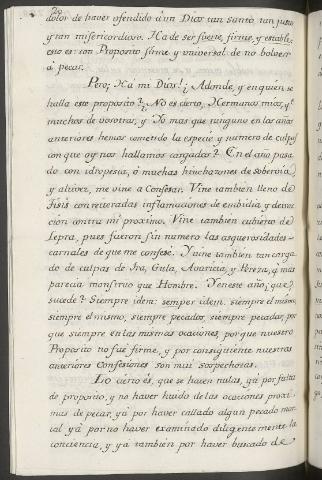 dolor de haver ofendido á un Dios tan santo, tan justo
y tan misericordioso. Ha de ser fuerte, firme, y estable,
esto es con Proposito firme y universal de no bolver
á pecar.
Pero; Ha mi Dios!¿ Adonde, y en quien, se
halla este proposito?¿ No es cierto, Hermanos mios, q.e
muchos de vosotras, y Yo mas que ninguno en los años
anteriores hemos cometido la especie, y numero de culpas
con que oy nos hallamos cargados? En el año pasa
do con idropesia, ó muchas hinchazones de sobervia,
y altivez, me vine a Confesar. Vine tambien lleno de
Tisis con reiteradas inflamaciones de embidia, y
contra mi proximo. Vine tambien cubierto de
Lepra, pues fueron sin numero las asquerosidades
carnales de que me confesé. Y vine tambien tan carga
do de culpas de Ira, Gula, Avaricia, y Pereza, q.e mas
parecia monstruo que Hombre. Y en este año ¿que
sucede? Siempre idem: semper idem. siempre el mismo,
siempre el mismo, siempre pecados, siempre pecados, por
que siempre en las mismas ocaciones, porque nuestro
Proposito no fué firme, y por consiguiente nuestras
anteriores Confesiones son mui sospechosas.
Lo cierto és, que se haven nulas, yá por falta
de proposito, y no haver huido de las ocaciones proxi
mas de pecar, yá por haver callado algun pecado mor
tal yá por no haver examinado diligentemente la
conciencia, y yá tambien por haver buscado de